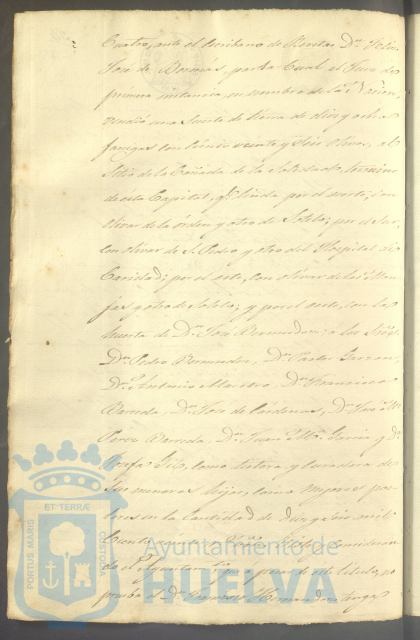 Cuatro, ante el Escribano de Rentas Dn. Felix
José de Bormás, por la Cual el Juez de
primera instancia, en nombre de la Nacion
vendió una Suerte de tierra de diez y ocho
fanegas con Ciento veinte y Seis Olivos, al
Sitio de la Cañada de la Soledad, termino
de esta Capital, qe. linda por el norte, con
olivar de la órden y otro de Sotelo; por el Sur,
Con olivar de S. Pedro y otro del Hospital de
Caridad; por el este, Con olivar de las Mon-
jas y otro de Sotelo; y por el oeste, con la
huerta de Dn. José Bermudez: a los Sres.
Dn. Pedro Bermudez, Dn. Nicolas Garzon,
Dn. Antonio Maestro, Dn. Francisco
Barreda, Dn. José de Cárdenas, Dn. José Ma.
Perez Barreda, Dn. Juan Ma. Garcia y Da.
Josefa como tutora y curadora de
Sus menores hijos, como mejores pos-
tores en la Cantidad de diez y Seis mil
Ciento
do el qe. por este titulo, no
prueba el Dn. Hernandez tenga
PORTUS MARIS
ET TERRÆ
CUSTODIA
Ayuntamiento de
HUELVA